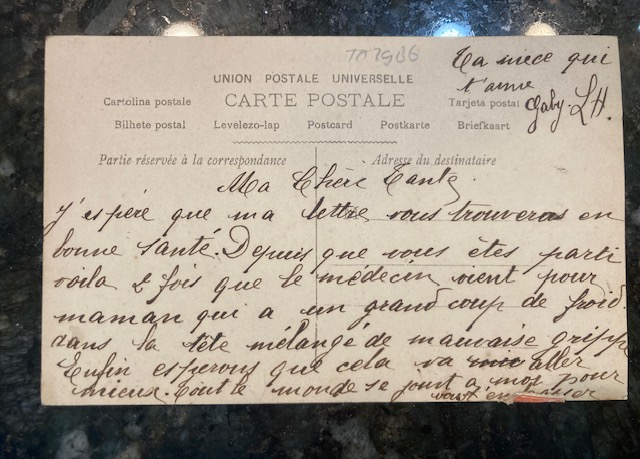 Ta niece qui
t'aime
Gaby. L.H.
UNION POSTALE UNIVERSELLE
Cartolina postale CARTE POSTALE Tarjeta postal
Bilhete postal Levelezo-lap Postcard Postkarte Briefkaart
Partie réservée à la correspondance Adresse du destinataire
Ma Chère Tante.
J'espère que ma lettre vous trouveras en
bonne santé. Depuis que vous êtes parti
voila 2 fois que le médecin vient pour
maman qui a un grand coup de froid.
dans la tête mélangé de mauvaise grippe
Enfin esperons que cela va aller
mieux. Tout le monde se joint a moi pour
vous embrasser